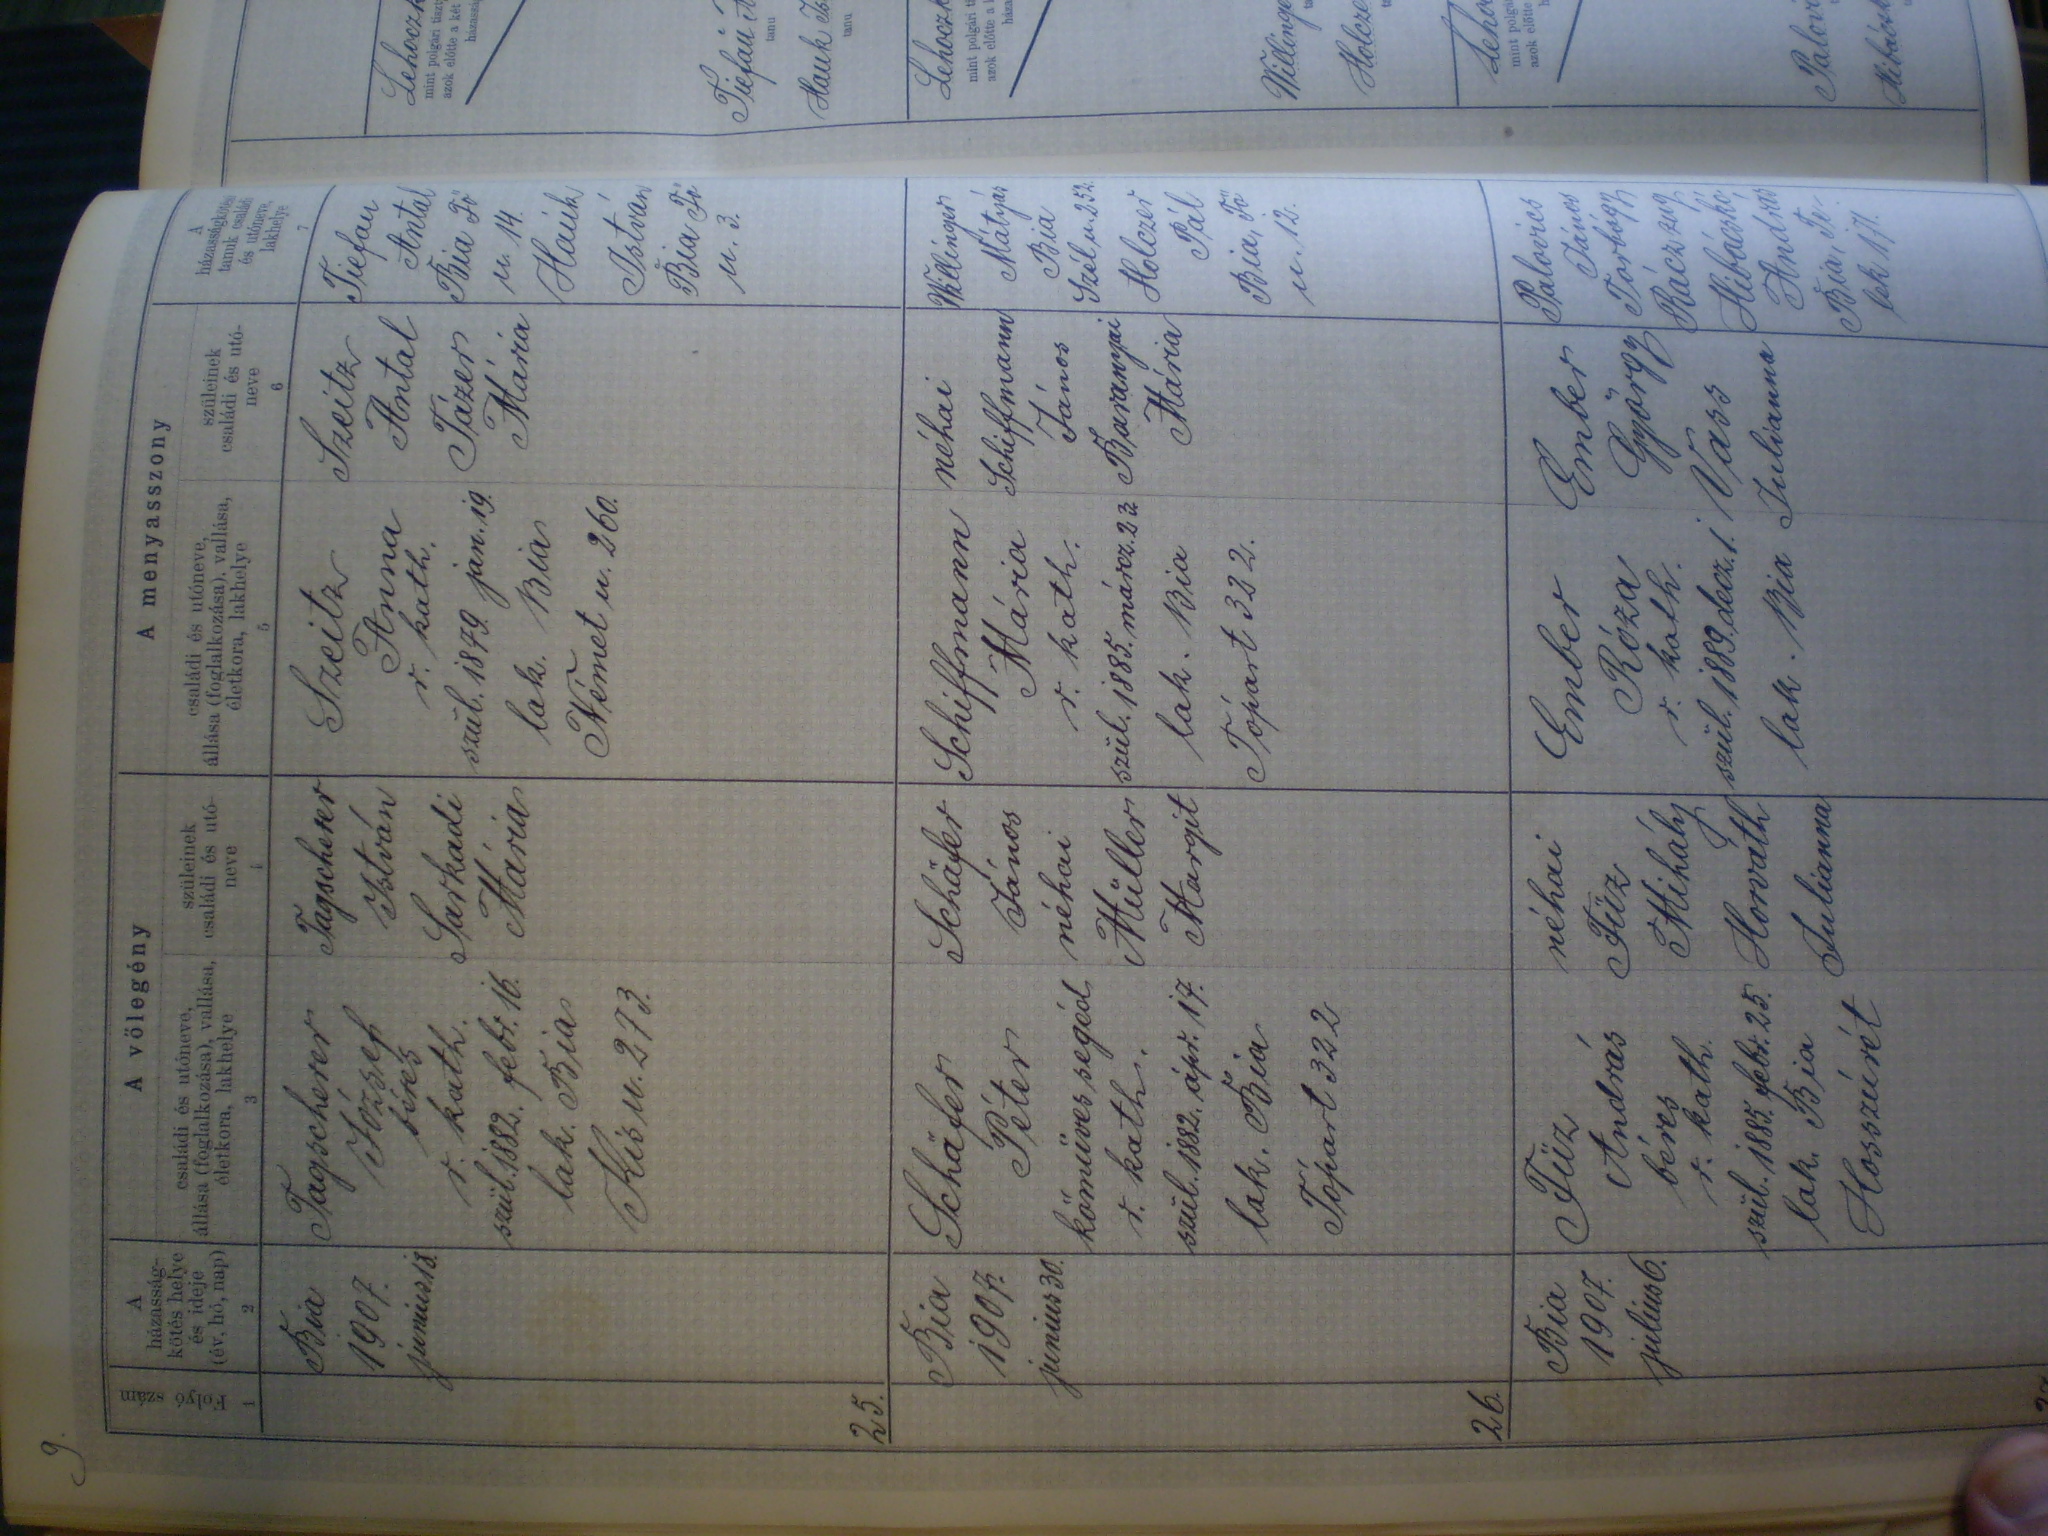 9.
Folyó szám
1
A
házasság-
kötés helye
és ideje
(év, hó, nap)
2
A völegény
családi és utóneve,
állása (foglalkozása), vallása,
életkora, lakhelye
3
szüleinek
családi és utó-
neve
4
A menyasszony
családi és utóneve,
állása (foglalkozása), vallása,
életkora, lakhelye
5
szüleinek
családi és utó-
neve
6
A
házasságkötési
tanuk családi
és utóneve,
lakhelye
7
25.
Bia
1907.
junius 18.
Tagscherer
József
béres
r. kath.
szül. 1882. febr. 16.
lak. Bia
Kis u. 273.
Tagscherer
István
Sarkadi
Mária
Szeitz
Anna
r. kath.
szül. 1879. jan. 19.
lak. Bia
Német u. 260.
Szeitz
Antal
Tázer
Mária
Tiefau
Antal
Bia Fö
u. 14.
Hauk
István
Bia Fö
u. 3.
26.
Bia
1907.
junius 30.
Schäfer
Péter
kömüves segéd
r. kath.
szül. 1882. ápr. 17.
lak. Bia
Tópart 322
Schäfer
János
néhai
Müller
Margit
Schiffmann
Mária
r. kath.
szül. 1885. márcz. 23
lak. Bia
Tópart 322.
néhai
Schiffmann
János
Baranyai
Mária
Willinger
Mátyás
Bia
Szél u. 252.
Holczer
Pál
Bia, Fö
u. 12.
Bia
1907.
julius 6.
Füz
András
béres
r. kath.
szül. 1885. febr. 25.
lak. Bia
Hosszúrét
néhai
Füz
Mihály
Horváth
Julianna
Ember
Róza
r. kath.
szül. 1889. decz. 1.
lak. Bia
Ember
György
Vass
Julianna
Palovics
János
Torbágy
Ráczzug
Hibácskó
András
Bia, Te-
lek 171.
Lehoczk
mint polgári tiszt
azok előtte a két
házasság
Tiefau A
tanu
Hauk Is
tanu
Lehoczk
mint polgári ti
azok előtte a k
háza
Willinge
Holcze
Leho
mint polg
azok előtt
Palovi
Hibácsk